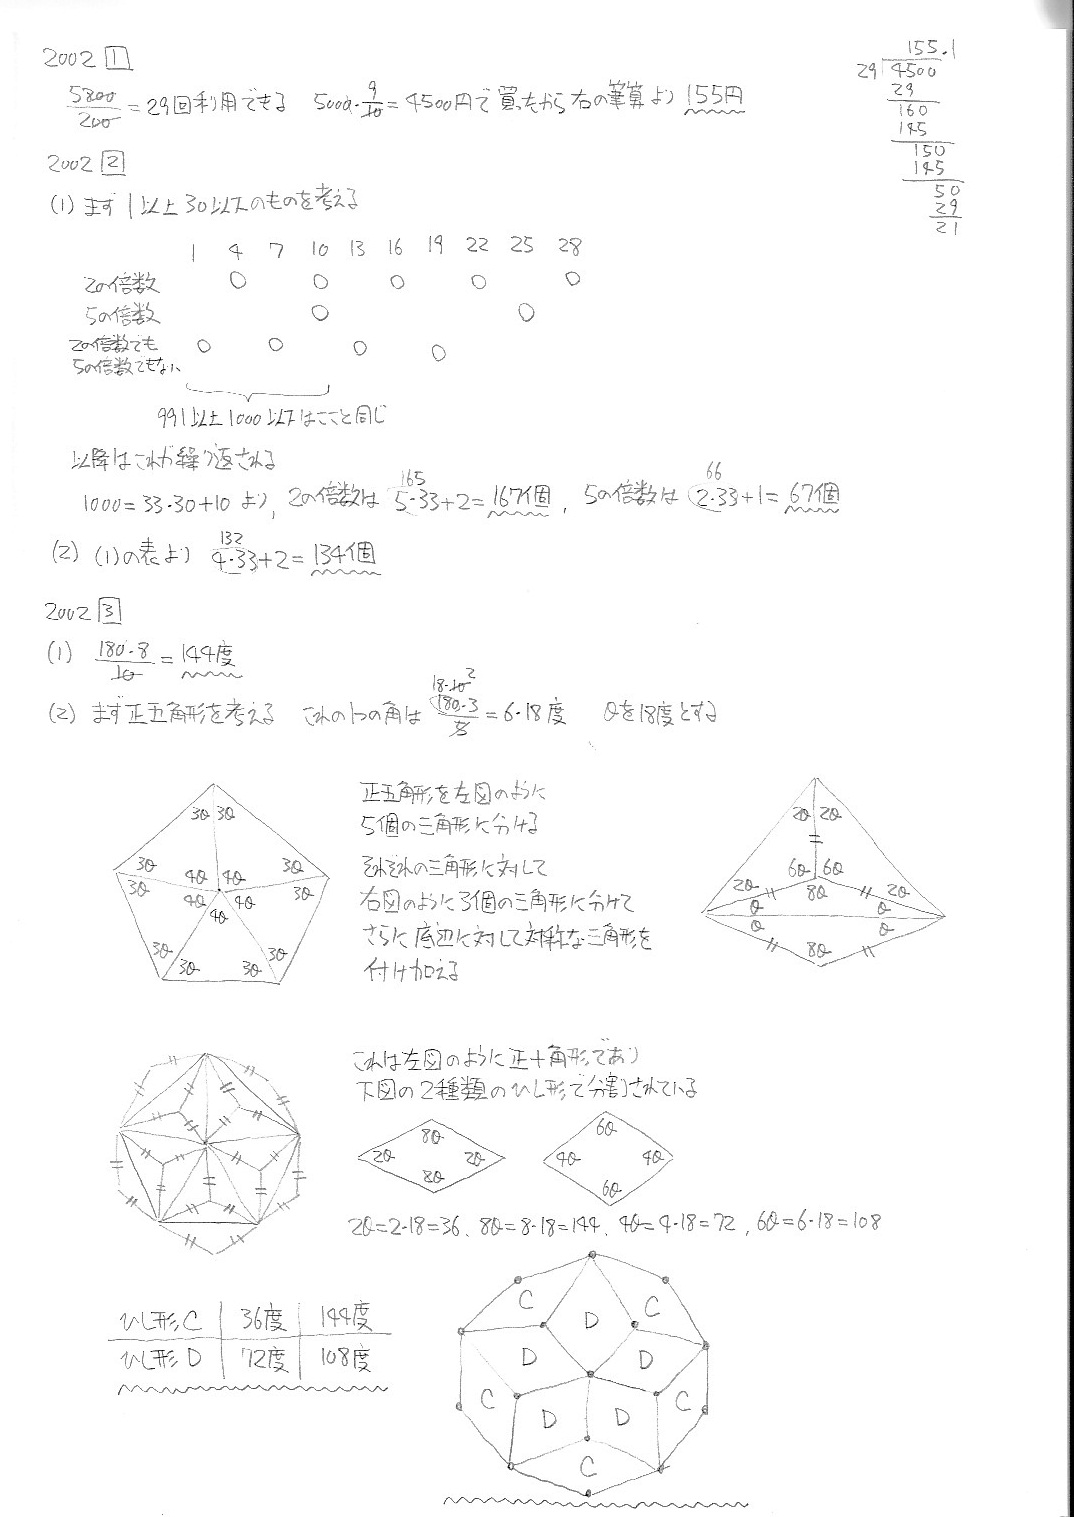 2002 1
5800/200 = 29回利用できる 5000・9/10 = 4500円で買ったから右の筆算より 155円
155.1
29 4500
29
160
145
150
145
50
29
21
2002 2
(1) まず1以上30以下のものを考える
1 4 7 10 13 16 19 22 25 28
2の倍数 ○ ○ ○ ○ ○
5の倍数 ○ ○
2の倍数でも ○ ○ ○ ○
5の倍数でもない
991以上1000以下はここと同じ
以降はこれが繰り返される
165 66
1000=33・30+10 より, 2の倍数は 5・33+2=167個, 5の倍数は 2・33+1=67個
132
(2) (1)の表より 4・33+2=134個
2002 3
(1) 180・8/10 = 144度
18・10 2
(2) まず正五角形を考える これの1つの角は 180・3/5 = 6・18度 θを18度とする
正五角形を左図のように
5個の三角形に分ける
それぞれの三角形に対して
右図のように3個の三角形に分けて
さらに底辺に対して対称な三角形を
付け加える
3θ 3θ
3θ 4θ 4θ 3θ
3θ 4θ 4θ 3θ
4θ
3θ 3θ
3θ 3θ
2θ 2θ
6θ 6θ
2θ 8θ 2θ
θ θ
θ θ
8θ
これは左図のように正十角形であり
下図の2種類のひし形で分割されている
8θ
2θ 2θ
8θ
6θ
4θ 4θ
6θ
2θ=2・18=36, 8θ=8・18=144, 4θ=4・18=72, 6θ=6・18=108
ひし形C 36度 144度
ひし形D 72度 108度
C D C
D D
C D D C
C